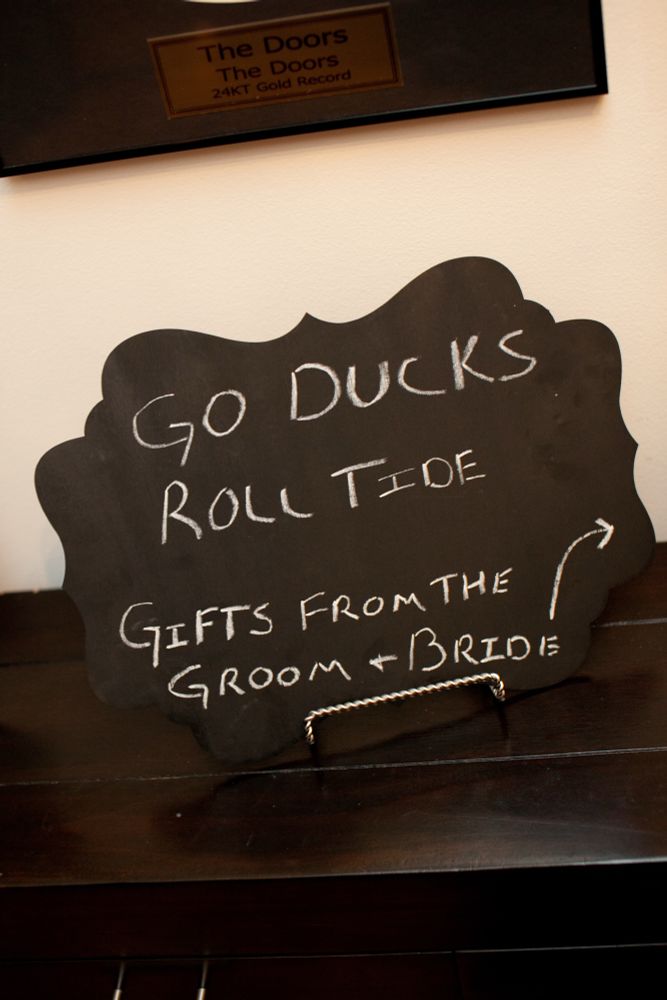 The Doors
The Doors
24KT Gold Record
GO DUCKS
ROLL TIDE
GIFTS FROM THE
GROOM + BRIDE